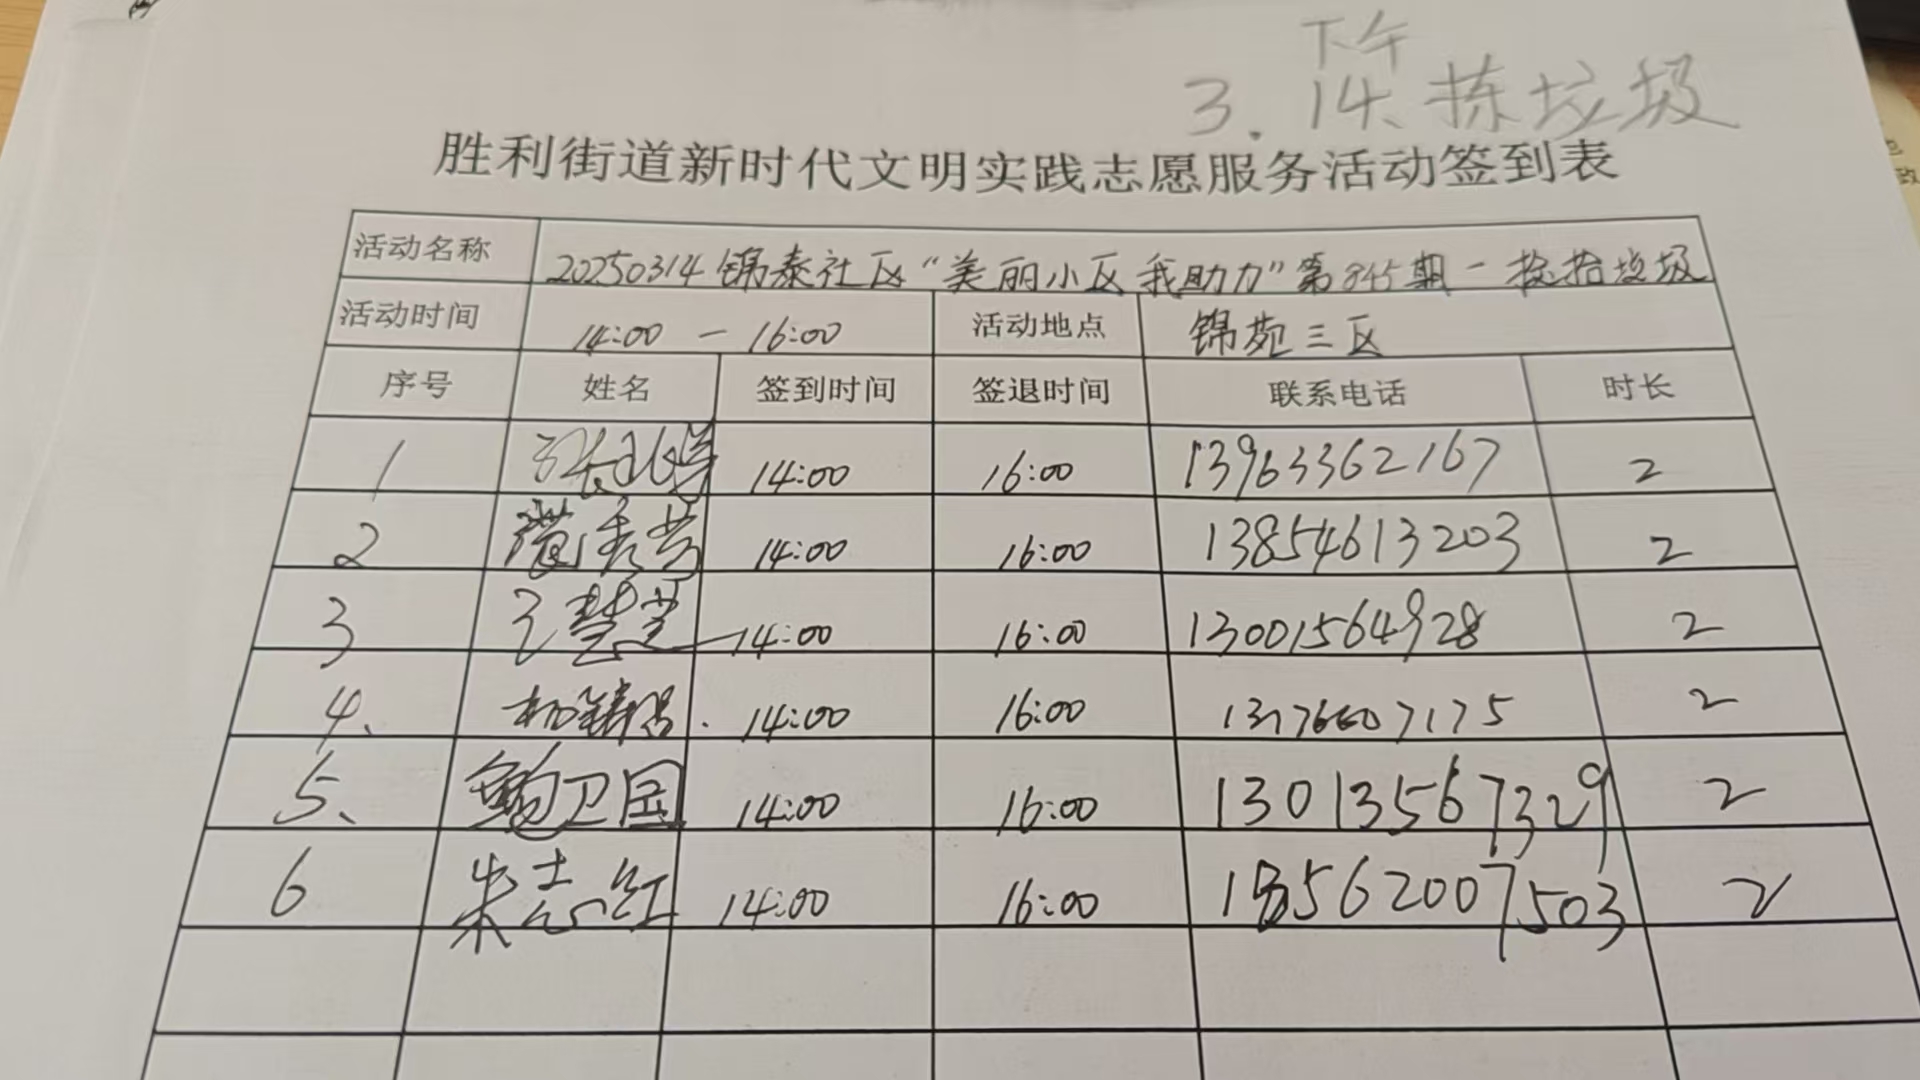 下午
3.14、拣垃圾
胜利街道新时代文明实践志愿服务活动签到表
活动名称 20250314锦泰社区“美丽小区我助力”第845期-捡拾垃圾
活动时间 14:00-16:00 活动地点 锦苑三区
序号 姓名 签到时间 签退时间 联系电话 时长
1 14:00 16:00 13963362167 2
2 14:00 16:00 13854613203 2
3 王慧芝 14:00 16:00 13001564928 2
4、 14:00 16:00 2
5、 鲍卫国 14:00 16:00 13013567329 2
6 朱志红 14:00 16:00 2